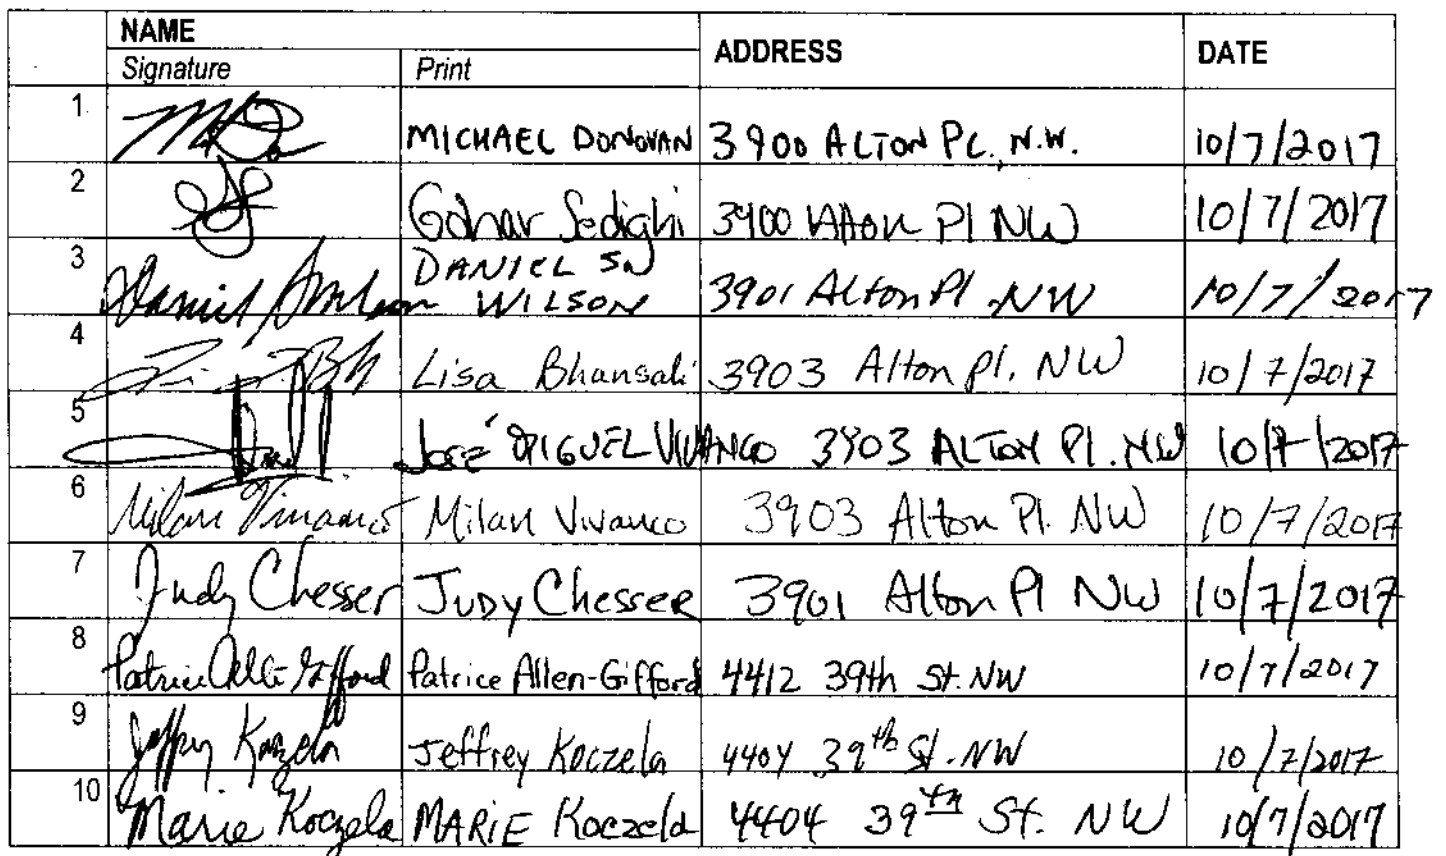 NAME ADDRESS DATE
Signature Print
1 MICHAEL DONOVAN 3900 ALTON PL. N.W. 10/7/2017
2 Gohar Sedighi 3900 Alton Pl NW 10/7/2017
3 Daniel DANIEL
WILSON 3901 Alton Pl NW 10/7/2017
4 Lisa Bhansali 3903 Alton Pl. NW 10/7/2017
5 José MIGUEL VIVANCO 3903 ALTON Pl. NW 10/7/2017
6 Milan Vivanco Milan Vivanco 3903 Alton Pl. NW 10/7/2017
7 Judy Chesser JUDY Chesser 3901 Alton Pl NW 10/7/2017
8 Patrice Allen-Gifford Patrice Allen-Gifford 4412 39th St. NW 10/7/2017
9 Jeffrey Koczela Jeffrey Koczela 4404 39th St. NW 10/7/2017
10 Marie Koczela MARIE Koczela 4404 39th St. NW 10/7/2017